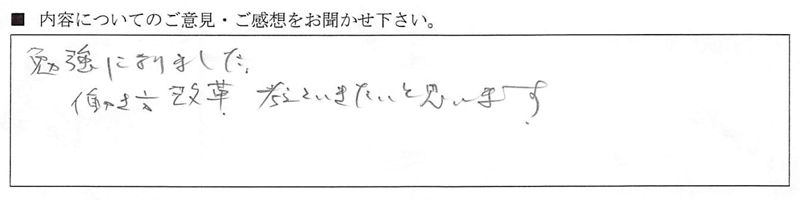 ■ 内容についてのご意見・ご感想をお聞かせ下さい。
勉強になりました。
働き方改革 考えていきたいと思います